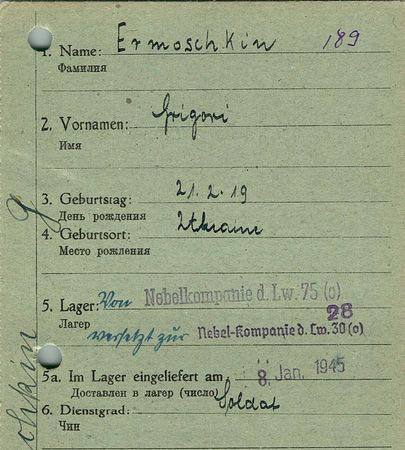 1. Name: Ermoschkin 189
Фамилия
2. Vornamen: Grigori
Имя
3. Geburtstag: 21.2.19
День рождения
4. Geburtsort: Ukraine
Место рождения
5. Lager: Von Nebelkompanie d. Lw. 75 (o)
28
Лагер versetzt zur Nebel-Kompanie d. Lw. 30 (o)
5a. Im Lager eingeliefert am 8. Jan. 1945
Доставлен в лагер (число)
6. Dienstgrad: Soldat
Чин